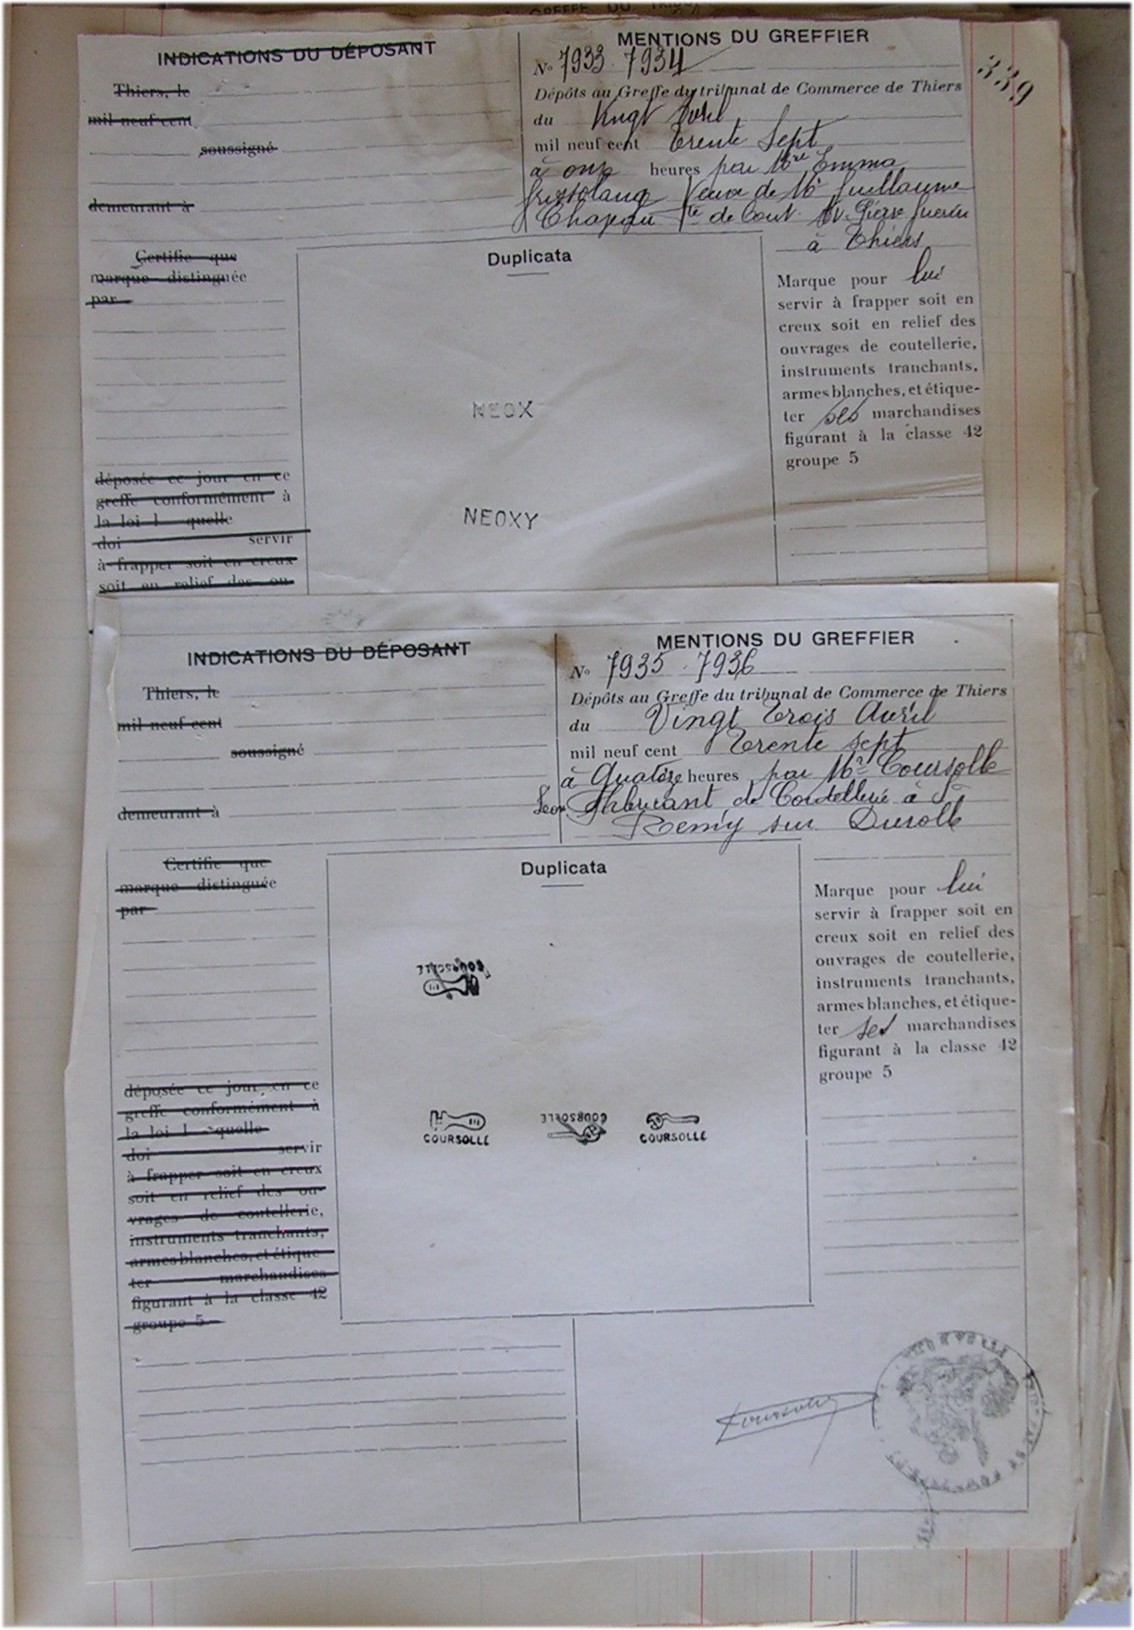 GREFFE DU TRIBU
339
INDICATIONS DU DÉPOSANT
Thiers, le
mil neuf cent
soussigné
demeurant à
MENTIONS DU GREFFIER
No 7933 7934
Dépôts au Greffe du tribunal de Commerce de Thiers
du Vingt Avril
mil neuf cent Trente Sept
à onze heures par Mme Emma
Veuve de Mr Guillaume
Chapeau de Cout. Av. Pierre Guérin
à Thiers
Certifie que
marque distinguée
par
déposée ce jour en ce
greffe conformément à
la loi l quelle
doi servir
à frapper soit en creux
soit en relief des ou-
Duplicata
NEOX
NEOXY
Marque pour lui
servir à frapper soit en
creux soit en relief des
ouvrages de coutellerie,
instruments tranchants,
armes blanches, et étique-
ter ses marchandises
figurant à la classe 42
groupe 5
INDICATIONS DU DÉPOSANT
Thiers, le
mil neuf cent
soussigné
demeurant à
MENTIONS DU GREFFIER
No 7935 7936
Dépôts au Greffe du tribunal de Commerce de Thiers
du Vingt Trois Avril
mil neuf cent Trente sept
à Quatorze heures par Mr Coursolle
Leon Fabricant de Coutellerie à St
Remy sur Durolle
Certifie que
marque distinguée
par
déposée ce jour en ce
greffe conformément à
la loi l quelle
doi servir
à frapper soit en creux
soit en relief des ou-
vrages de coutellerie,
instruments tranchants,
armes blanches, et étique-
ter marchandises
figurant à la classe 42
groupe 5
Duplicata
COURSOLLE
COURSOLLE
COURSOLLE
COURSOLLE
Marque pour lui
servir à frapper soit en
creux soit en relief des
ouvrages de coutellerie,
instruments tranchants,
armes blanches, et étique-
ter ses marchandises
figurant à la classe 42
groupe 5
Coursolle